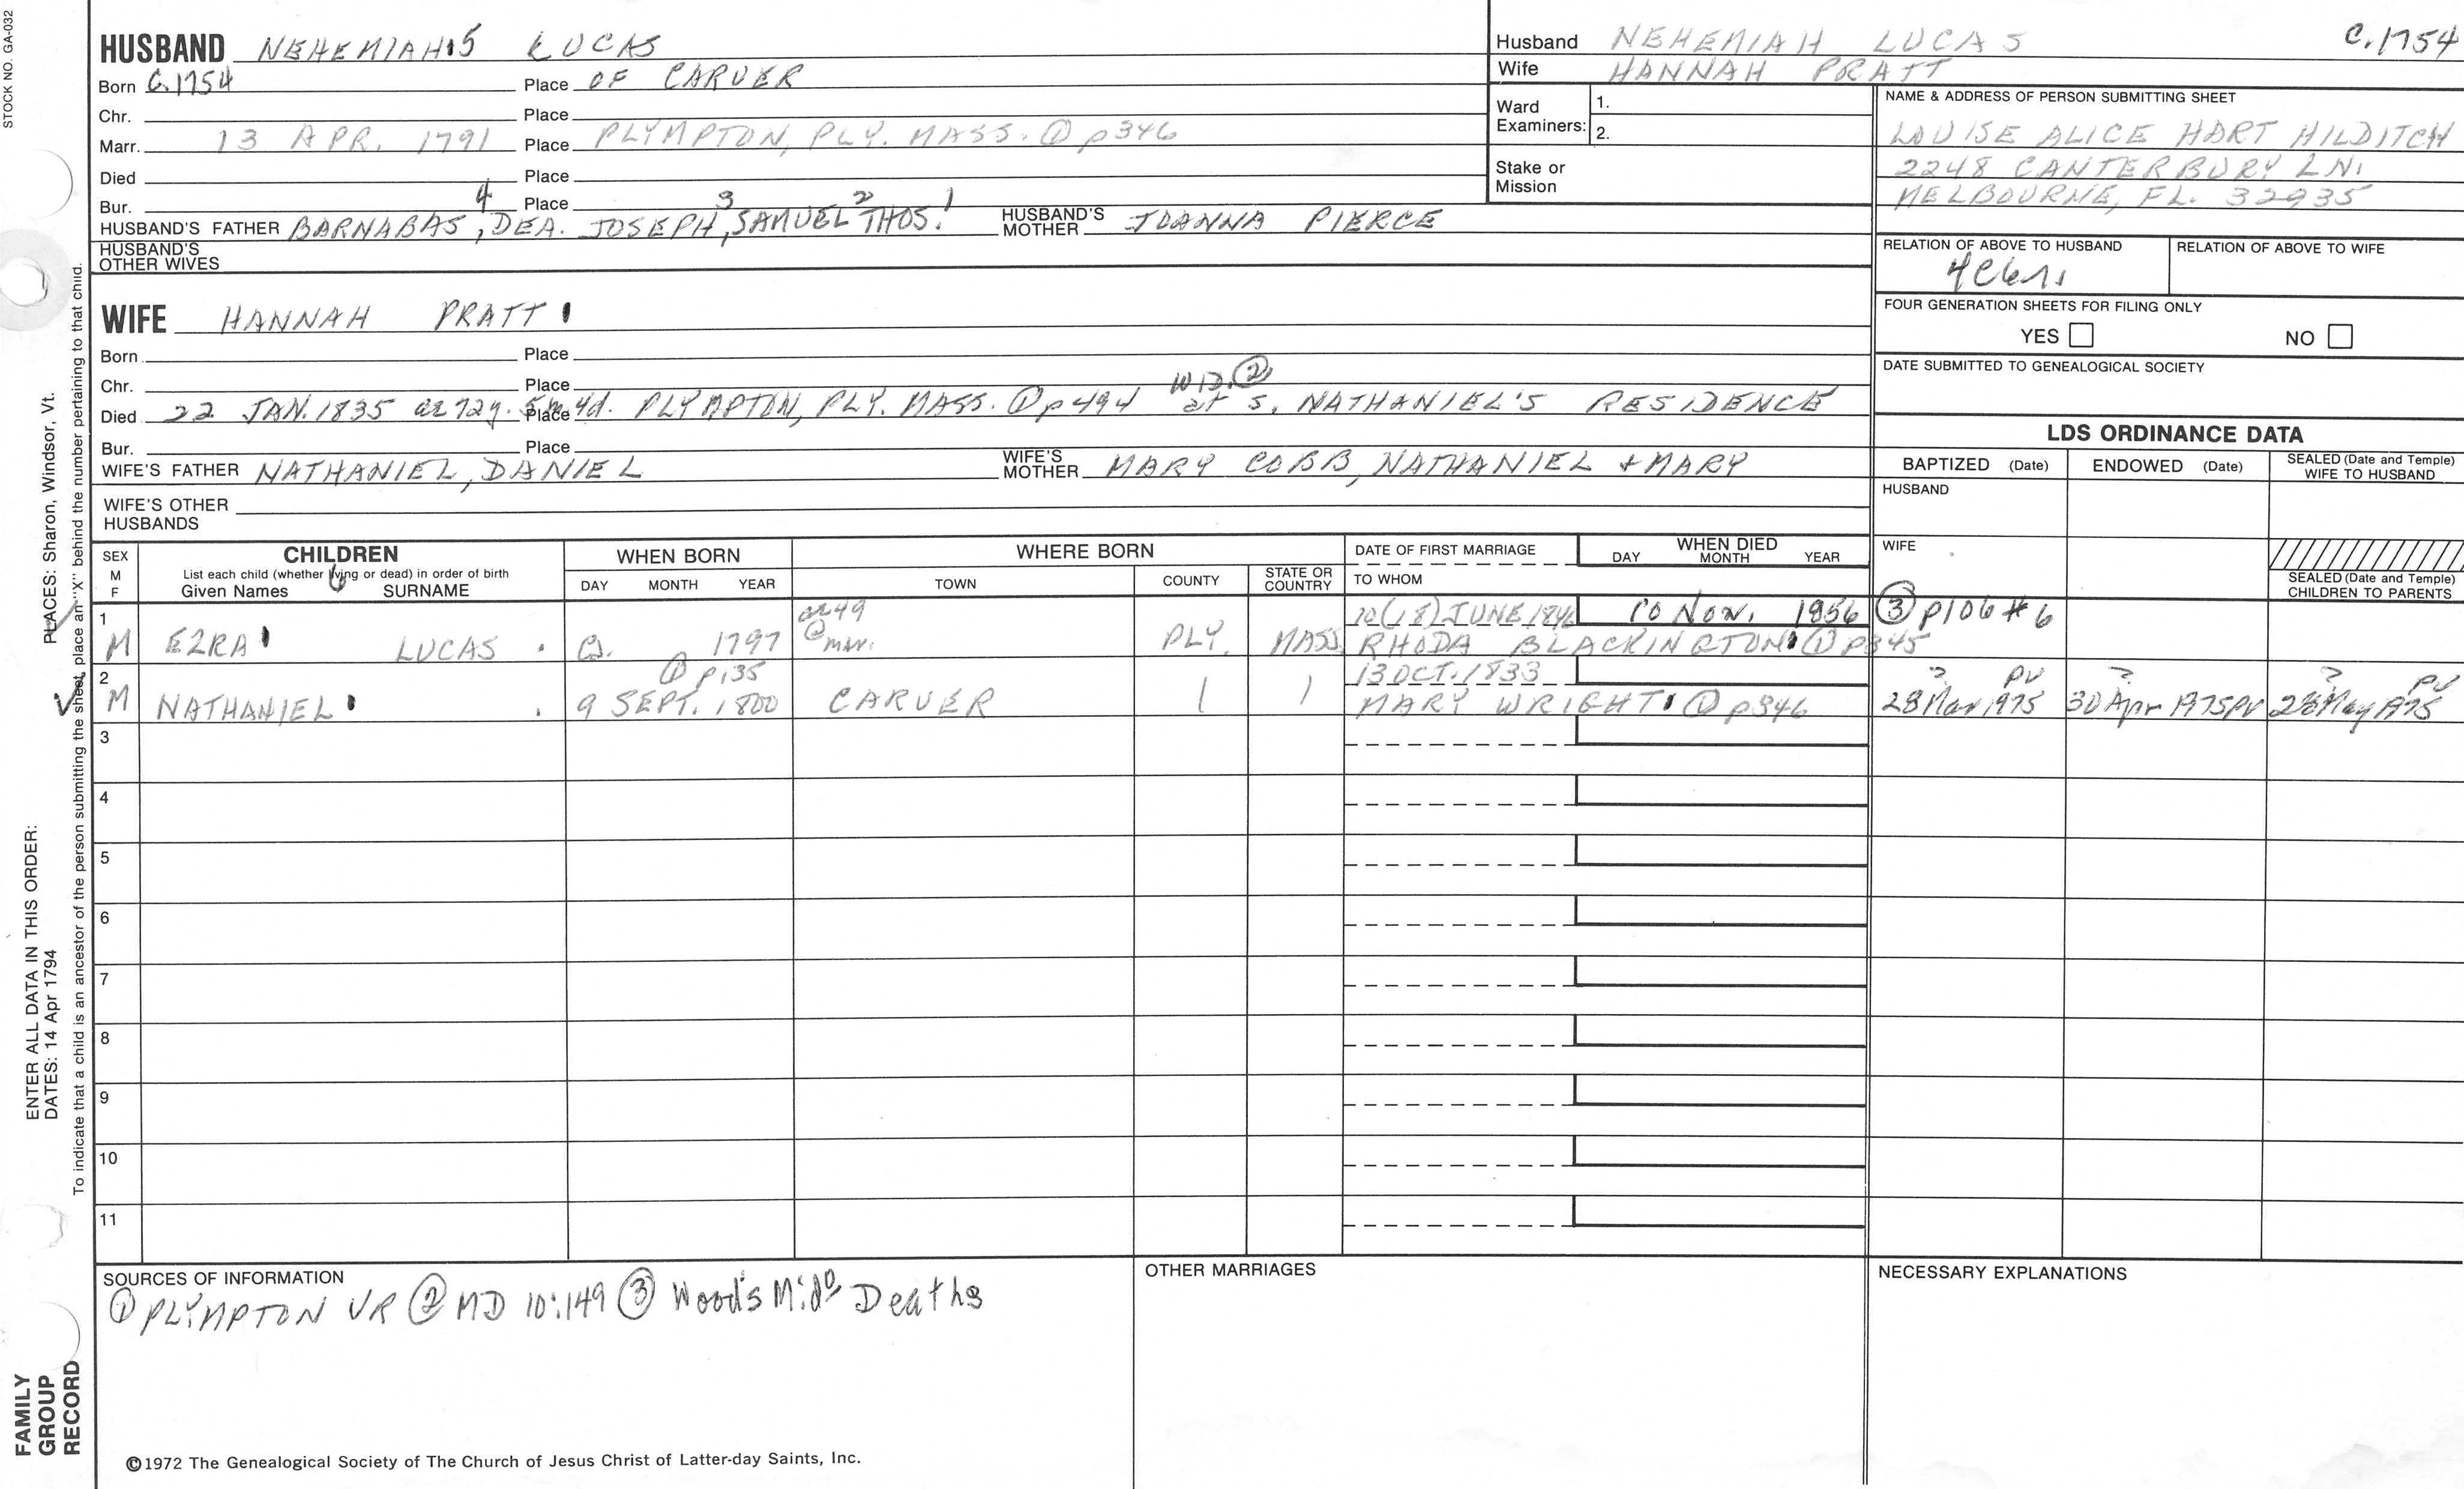 STOCK NO. GA-032
HUSBAND NEHEMIAH 5 LUCAS
Born C.1754 Place OF CARVER
Chr. Place
Marr. 13 APR. 1791 Place PLYMPTON, PLY. MASS. ① p346
Died Place
Bur. Place
HUSBAND'S FATHER BARNABAS 4, DEA. JOSEPH 3, SAMUEL 2 THOS. 1 HUSBAND'S MOTHER JOANNA PIERCE
HUSBAND'S OTHER WIVES
WIFE HANNAH PRATT
Born Place
Chr. Place
Died 22 JAN. 1835 ae 72y. 5m 4d. Place PLYMPTON, PLY. MASS. ① p494 WID. ② at s. NATHANIEL'S RESIDENCE
Bur. Place
WIFE'S FATHER NATHANIEL, DANIEL WIFE'S MOTHER MARY COBB, NATHANIEL + MARY
WIFE'S OTHER HUSBANDS
Husband NEHEMIAH LUCAS C.1754
Wife HANNAH PRATT
Ward Examiners: 1.
2.
Stake or Mission
NAME & ADDRESS OF PERSON SUBMITTING SHEET
LOUISE ALICE HART HILDITCH
2248 CANTERBURY LN.
MELBOURNE, FL. 32935
RELATION OF ABOVE TO HUSBAND RELATION OF ABOVE TO WIFE
4C6r.
FOUR GENERATION SHEETS FOR FILING ONLY
YES NO
DATE SUBMITTED TO GENEALOGICAL SOCIETY
LDS ORDINANCE DATA
BAPTIZED (Date) ENDOWED (Date) SEALED (Date and Temple) WIFE TO HUSBAND
HUSBAND
WIFE
SEALED (Date and Temple) CHILDREN TO PARENTS
SEX M F CHILDREN WHEN BORN WHERE BORN DATE OF FIRST MARRIAGE WHEN DIED
List each child (whether living or dead) in order of birth
Given Names SURNAME DAY MONTH YEAR TOWN COUNTY STATE OR COUNTRY TO WHOM DAY MONTH YEAR
6
1 ae 49 10(18) JUNE 1846 10 Nov. 1856 ③ p106 #6
M EZRA LUCAS C. 1797 @ mar. PLY. MASS. RHODA BLACKINGTON ① p345
2 ① p135 13 OCT. 1833 ? PV ? ? PV
M NATHANIEL 9 SEPT. 1800 CARVER MARY WRIGHT ① p346 28 Mar 1975 30 Apr 1975 PV 28 May 1975
3
4
5
6
7
8
9
10
11
SOURCES OF INFORMATION
① PLYMPTON VR ② MD 10:149 ③ Wood's Mido Deaths
OTHER MARRIAGES
NECESSARY EXPLANATIONS
©1972 The Genealogical Society of The Church of Jesus Christ of Latter-day Saints, Inc.
FAMILY GROUP RECORD
ENTER ALL DATA IN THIS ORDER:
DATES: 14 Apr 1794 PLACES: Sharon, Windsor, Vt.
To indicate that a child is an ancestor of the person submitting the sheet, place an "X" behind the number pertaining to that child.